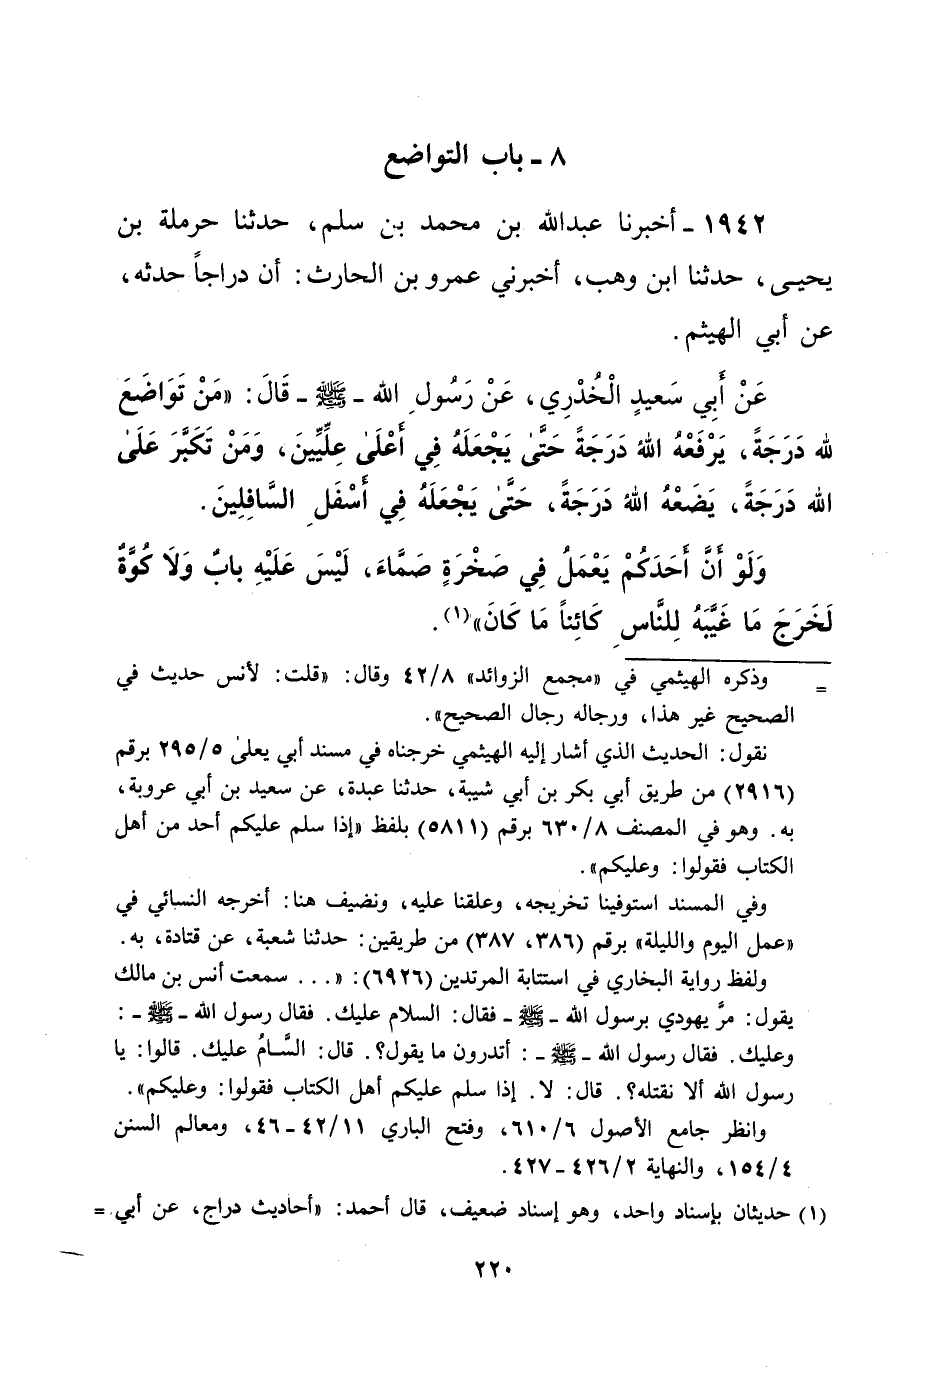 ٨ ـ باب التواضع
١٩٤٢ ـ أخبرنا عبدالله بن محمد بن سلم، حدثنا حرملة بن
يحيـى، حدثنا ابن وهب، أخبرني عمرو بن الحارث: أن دراجاً حدثه،
عن أبي الهيثم.
عَنْ أَبِي سَعيدٍ الْخُدْرِي، عَنْ رَسُولِ الله ـ ﷺ ـ قَالَ: «مَنْ تَوَاضَعَ
لله دَرَجَةً، يَرْفَعْهُ اللهُ دَرَجَةً حَتَّىٰ يَجْعَلَهُ فِي أَعْلَىٰ عِلِّيِّينَ، وَمَنْ تَكَبَّرَ عَلَىٰ
الله دَرَجَةً، يَضَعْهُ اللهُ دَرَجَةً، حَتَّىٰ يَجْعَلَهُ فِي أَسْفَلِ السَّافِلِينَ.
وَلَوْ أَنَّ أَحَدَكُمْ يَعْمَلُ فِي صَخْرَةٍ صَمَّاءَ، لَيْسَ عَلَيْهِ بابٌ وَلَا كُوَّةٌ
لَخَرَجَ مَا غَيَّبَهُ لِلنَّاسِ كَائِناً مَا كَانَ»(١).
= وذكره الهيثمي في «مجمع الزوائد» ٤٢/٨ وقال: «قلت: لأنس حديث في
الصحيح غير هذا، ورجاله رجال الصحيح».
نقول: الحديث الذي أشار إليه الهيثمي خرجناه في مسند أبي يعلىٰ ٢٩٥/٥ برقم
(٢٩١٦) من طريق أبي بكر بن أبي شيبة، حدثنا عبدة، عن سعيد بن أبي عروبة،
به. وهو في المصنف ٦٣٠/٨ برقم (٥٨١١) بلفظ «إذا سلم عليكم أحد من أهل
الكتاب فقولوا: وعليكم».
وفي المسند استوفينا تخريجه، وعلقنا عليه، ونضيف هنا: أخرجه النسائي في
«عمل اليوم والليلة» برقم (٣٨٦، ٣٨٧) من طريقين: حدثنا شعبة، عن قتادة، به.
ولفظ رواية البخاري في استتابة المرتدين (٦٩٢٦): «... سمعت أنس بن مالك
يقول: مرَّ يهودي برسول الله ـ ﷺ ـ فقال: السلام عليك. فقال رسول الله ـ ﷺ ـ :
وعليك. فقال رسول الله ـ ﷺ ـ : أتدرون ما يقول؟. قال: السَّامُ عليك. قالوا: يا
رسول الله ألا نقتله؟. قال: لا. إذا سلم عليكم أهل الكتاب فقولوا: وعليكم».
وانظر جامع الأصول ٦١٠/٦، وفتح الباري ٤٢/١١ ـ ٤٦، ومعالم السنن
١٥٤/٤، والنهاية ٤٢٦/٢ ـ ٤٢٧.
(١) حديثان بإسناد واحد، وهو إسناد ضعيف، قال أحمد: «أحاديث دراج، عن أبي =
٢٢٠